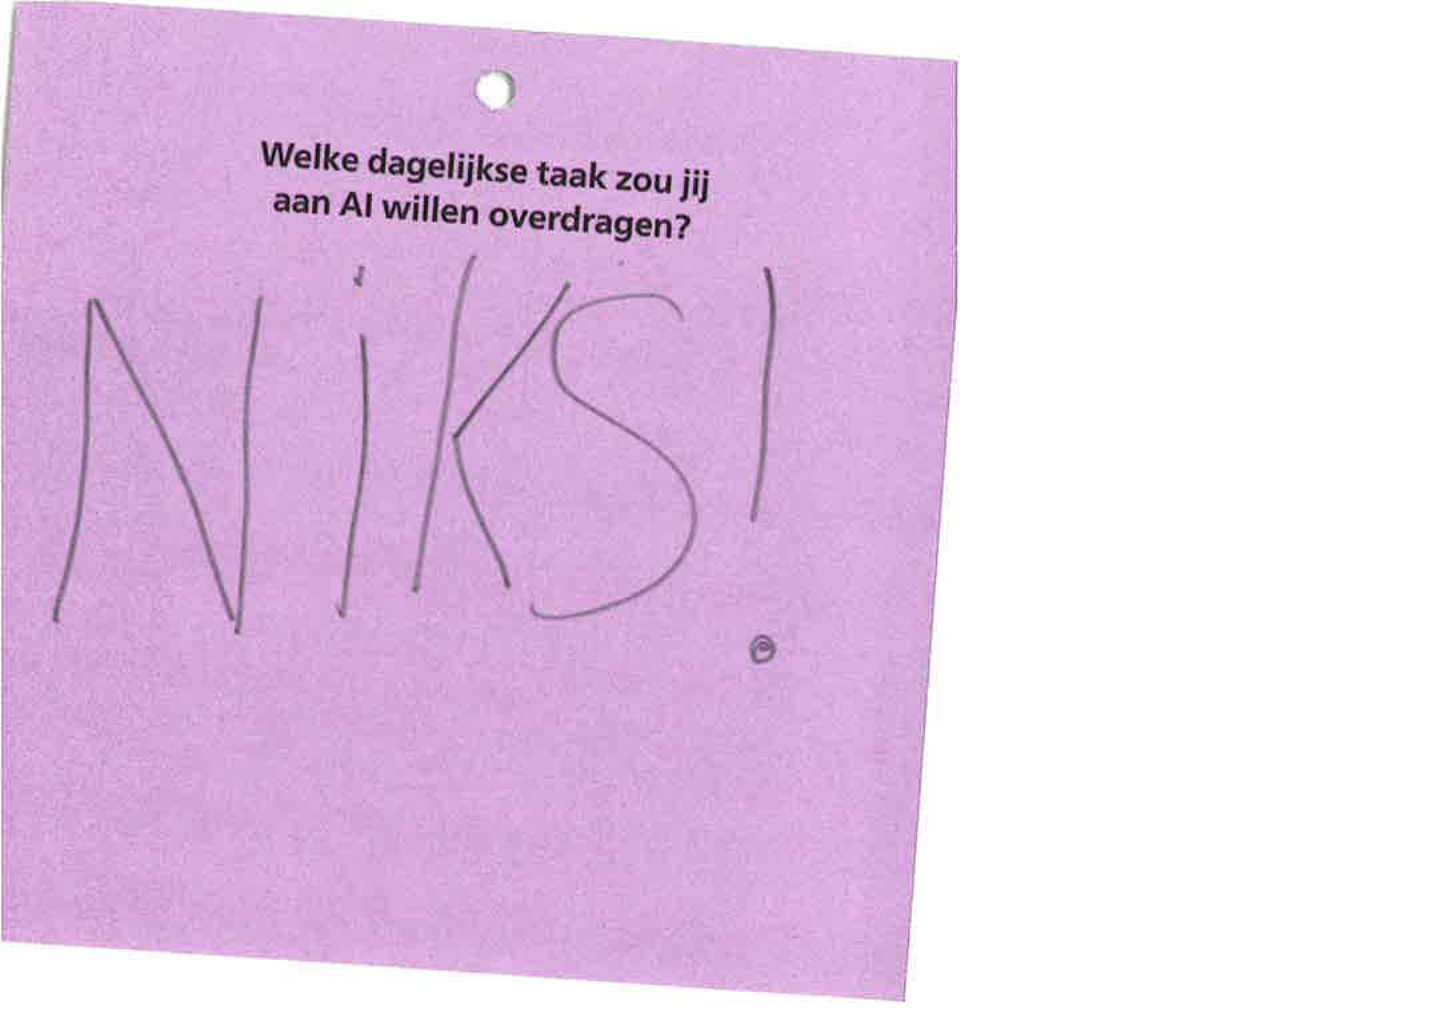 Welke dagelijkse taak zou jij
aan AI willen overdragen?
NiKS!